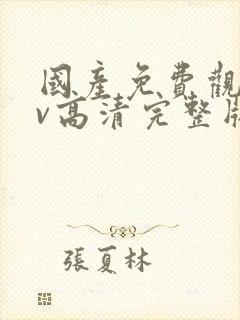 國産免費觀
v高清完整版
張夏林